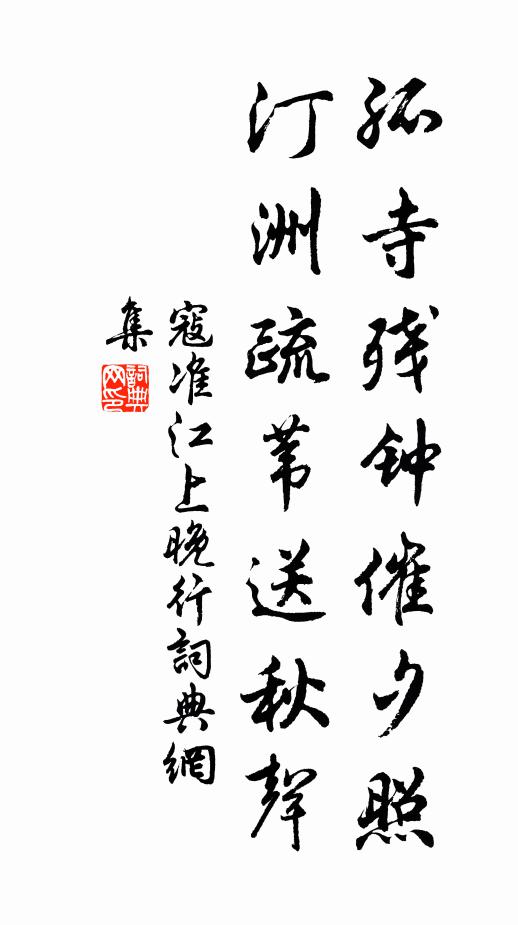 孤寺残钟催夕照
汀洲疏苇送秋聲
寇准江上晚行詞典網
集
詞典网印